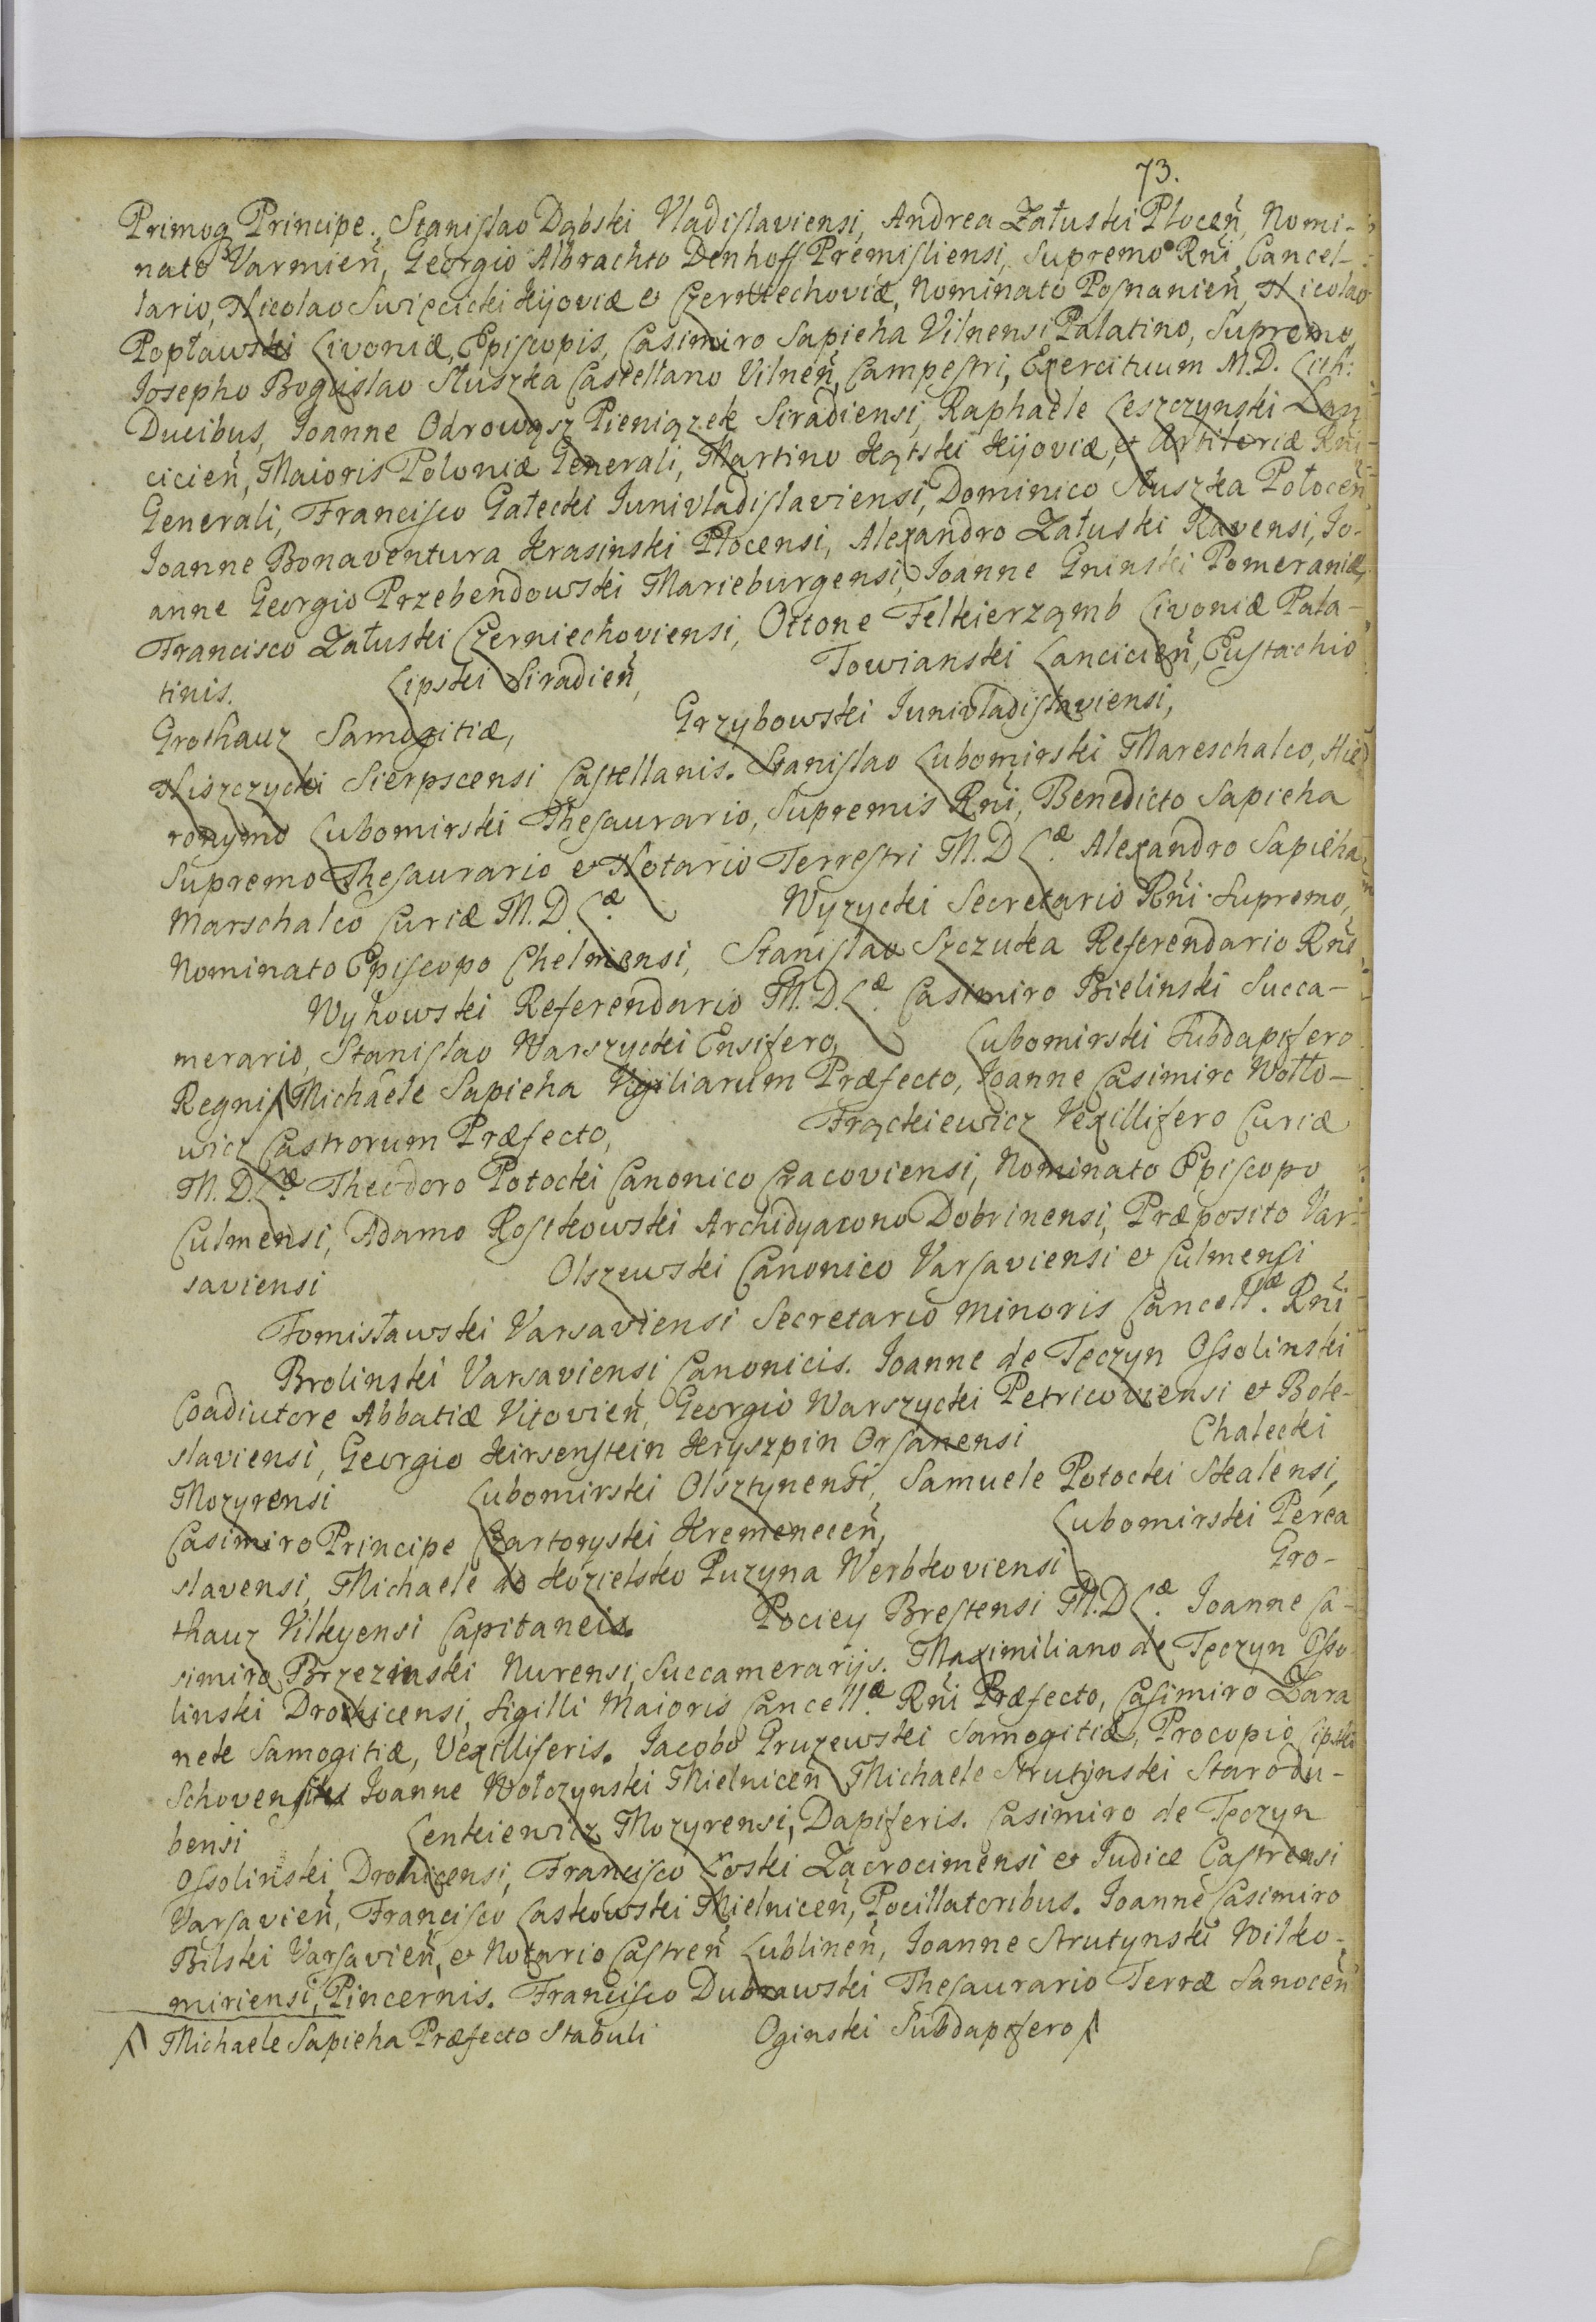 73.
Primog Principe. Stanislao Dąbski Vladislaviensi, Andrea Załuski Plocen̄, Nomi-
nato Varmien̄, Georgio Albrachto Denhoff Premisliensi, Supremo Rn̄i Cancel-
lario, Nicolao Swięcicki Kijoviæ et Czerniechoviæ, Nominato Posnanien̄, Nicolao
Popławski Livoniæ, Episcopis, Casimiro Sapieha Vilnensi Palatino, Supremo,
Josepho Boguslao Słuszka Castellano Vilnen̄, Campestri, Exercituum M.D. Lith:
Ducibus, Joanne Odrowąsz Pieniązek Siradiensi, Raphaele Leszczynski Lan
cicien̄, Maioris Poloniæ Generali, Martino Kątski Kijoviæ, et Artileriæ Rn̄i
Generali, Francisco Gałecki Junivladislaviensi, Dominico Słuszka Połocen̄
Joanne Bonaventura Krasinski Plocensi, Alexandro Załuski Ravensi, Jo-
anne Georgio Przebendowski Marieburgensi, Joanne Gninski Pomeraniæ,
Francisco Załuski Czerniechoviensi, Ottone Felkierzamb Livoniæ Pala-
tinis. Lipski Siradien̄, Towianski Lancicien̄, Eustachio
Grothauz Samogitiæ, Grzybowski Junivladislaviensi,
Niszczycki Sierpscensi Castellanis. Stanislao Lubomirski Mareschalco, Hie
ronymo Lubomirski Thesaurario, Supremis Rn̄i, Benedicto Sapieha
Supremo Thesaurario et Notario Terrestri M.D.L.æ Alexandro Sapieha
Marschalco Curiæ M.D.L.æ Wyzycki Secretario Rn̄i Supremo,
Nominato Episcopo Chelmensi, Stanislao Szczuka Referendario Rn̄i,
Wyhowski Referendario M.D.L.æ Casimiro Bielinski Succa-
merario, Stanislao Warszycki Ensifero, Lubomirski Subdapifero
Regni /\ Michaele Sapieha Vigiliarum Præfecto, Joanne Casimiro Wołło-
wicz Castrorum Præfecto, Frąckiewicz Vexillifero Curiæ
M.D.L.æ Theodoro Potocki Canonico Cracoviensi, Nominato Episcopo
Culmensi, Adamo Rostkowski Archidyacono Dobrinensi, Præposito Var-
saviensi Olszewski Canonico Varsaviensi et Culmensi
Tomisławski Varsaviensi Secretario minoris Cancell.æ Rn̄i
Brolinski Varsaviensi Canonicis. Joanne de Tęczyn Ossolinski
Coadiutore Abbatiæ Vitovien̄, Georgio Warszycki Petricoviensi et Bole-
slaviensi, Georgio Kirsenstein Kryszpin Orsanensi Chalecki
Mozyrensi Lubomirski Olsztynensi, Samuele Potocki Skalensi,
Casimiro Principe Czartoryski Kremenecen̄, Lubomirski Perea
slavensi, Michaele de Kozielsko Puzyna Werbkoviensi Gro-
thauz Vilkyensi Capitaneis. Pociey Brestensi M.D.L.æ Joanne Ca-
simiro Brzezinski Nurensi, Succamerarijs. Maximiliano de Tęczyn Osso
linski Drohicensi, Sigilli Maioris Cancell.æ Rn̄i Præfecto, Casimiro Zara
nek Samogitiæ, Vexilliferis. Jacobo Gruzewski Samogitiæ, Procopio Lipski
Joanne Wołczynski Mielnicen̄ Michaele Strutynski Starodu-
bensi Lenkiewicz Mozyrensi, Dapiferis. Casimiro de Tęczyn
Ossolinski Drohicensi, Francisco Loski Zacrocimensi et Judice Castrensi
Varsavien̄, Francisco Laskowski Mielnicen̄, Pocillatoribus. Joanne Casimiro
Bilski Varsavien̄, et Notario Castren̄ Lublinen̄, Joanne Strutynski Wilko-
miriensi, Pincernis. Francisco Dubrawski Thesaurario Terræ Sanocen̄
/\ Michaele Sapieha Præfecto Stabuli Oginski Subdapifero /\